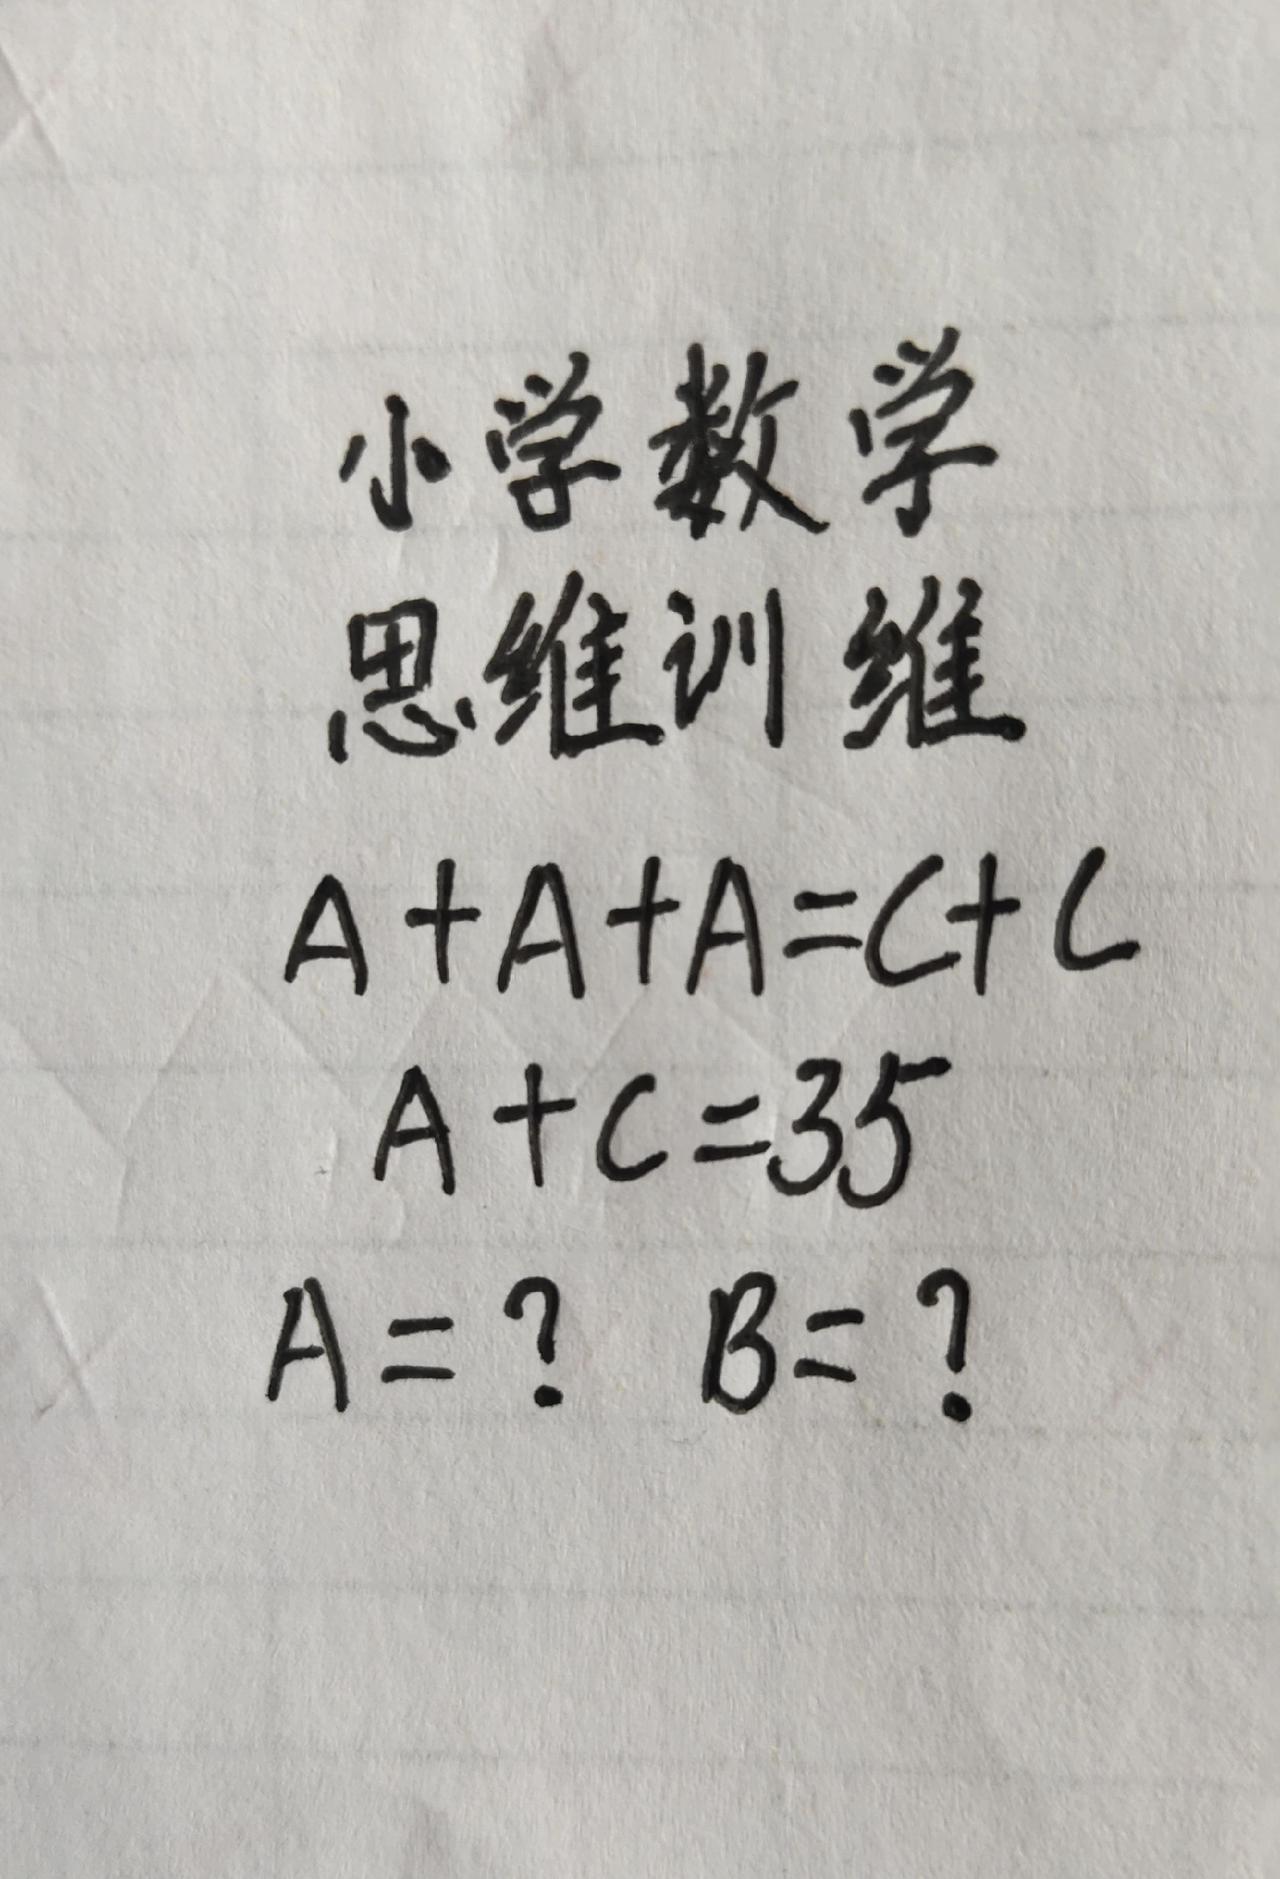 小学数学
思维训维
A+A+A=C+C
A+C=35
A=? B=?